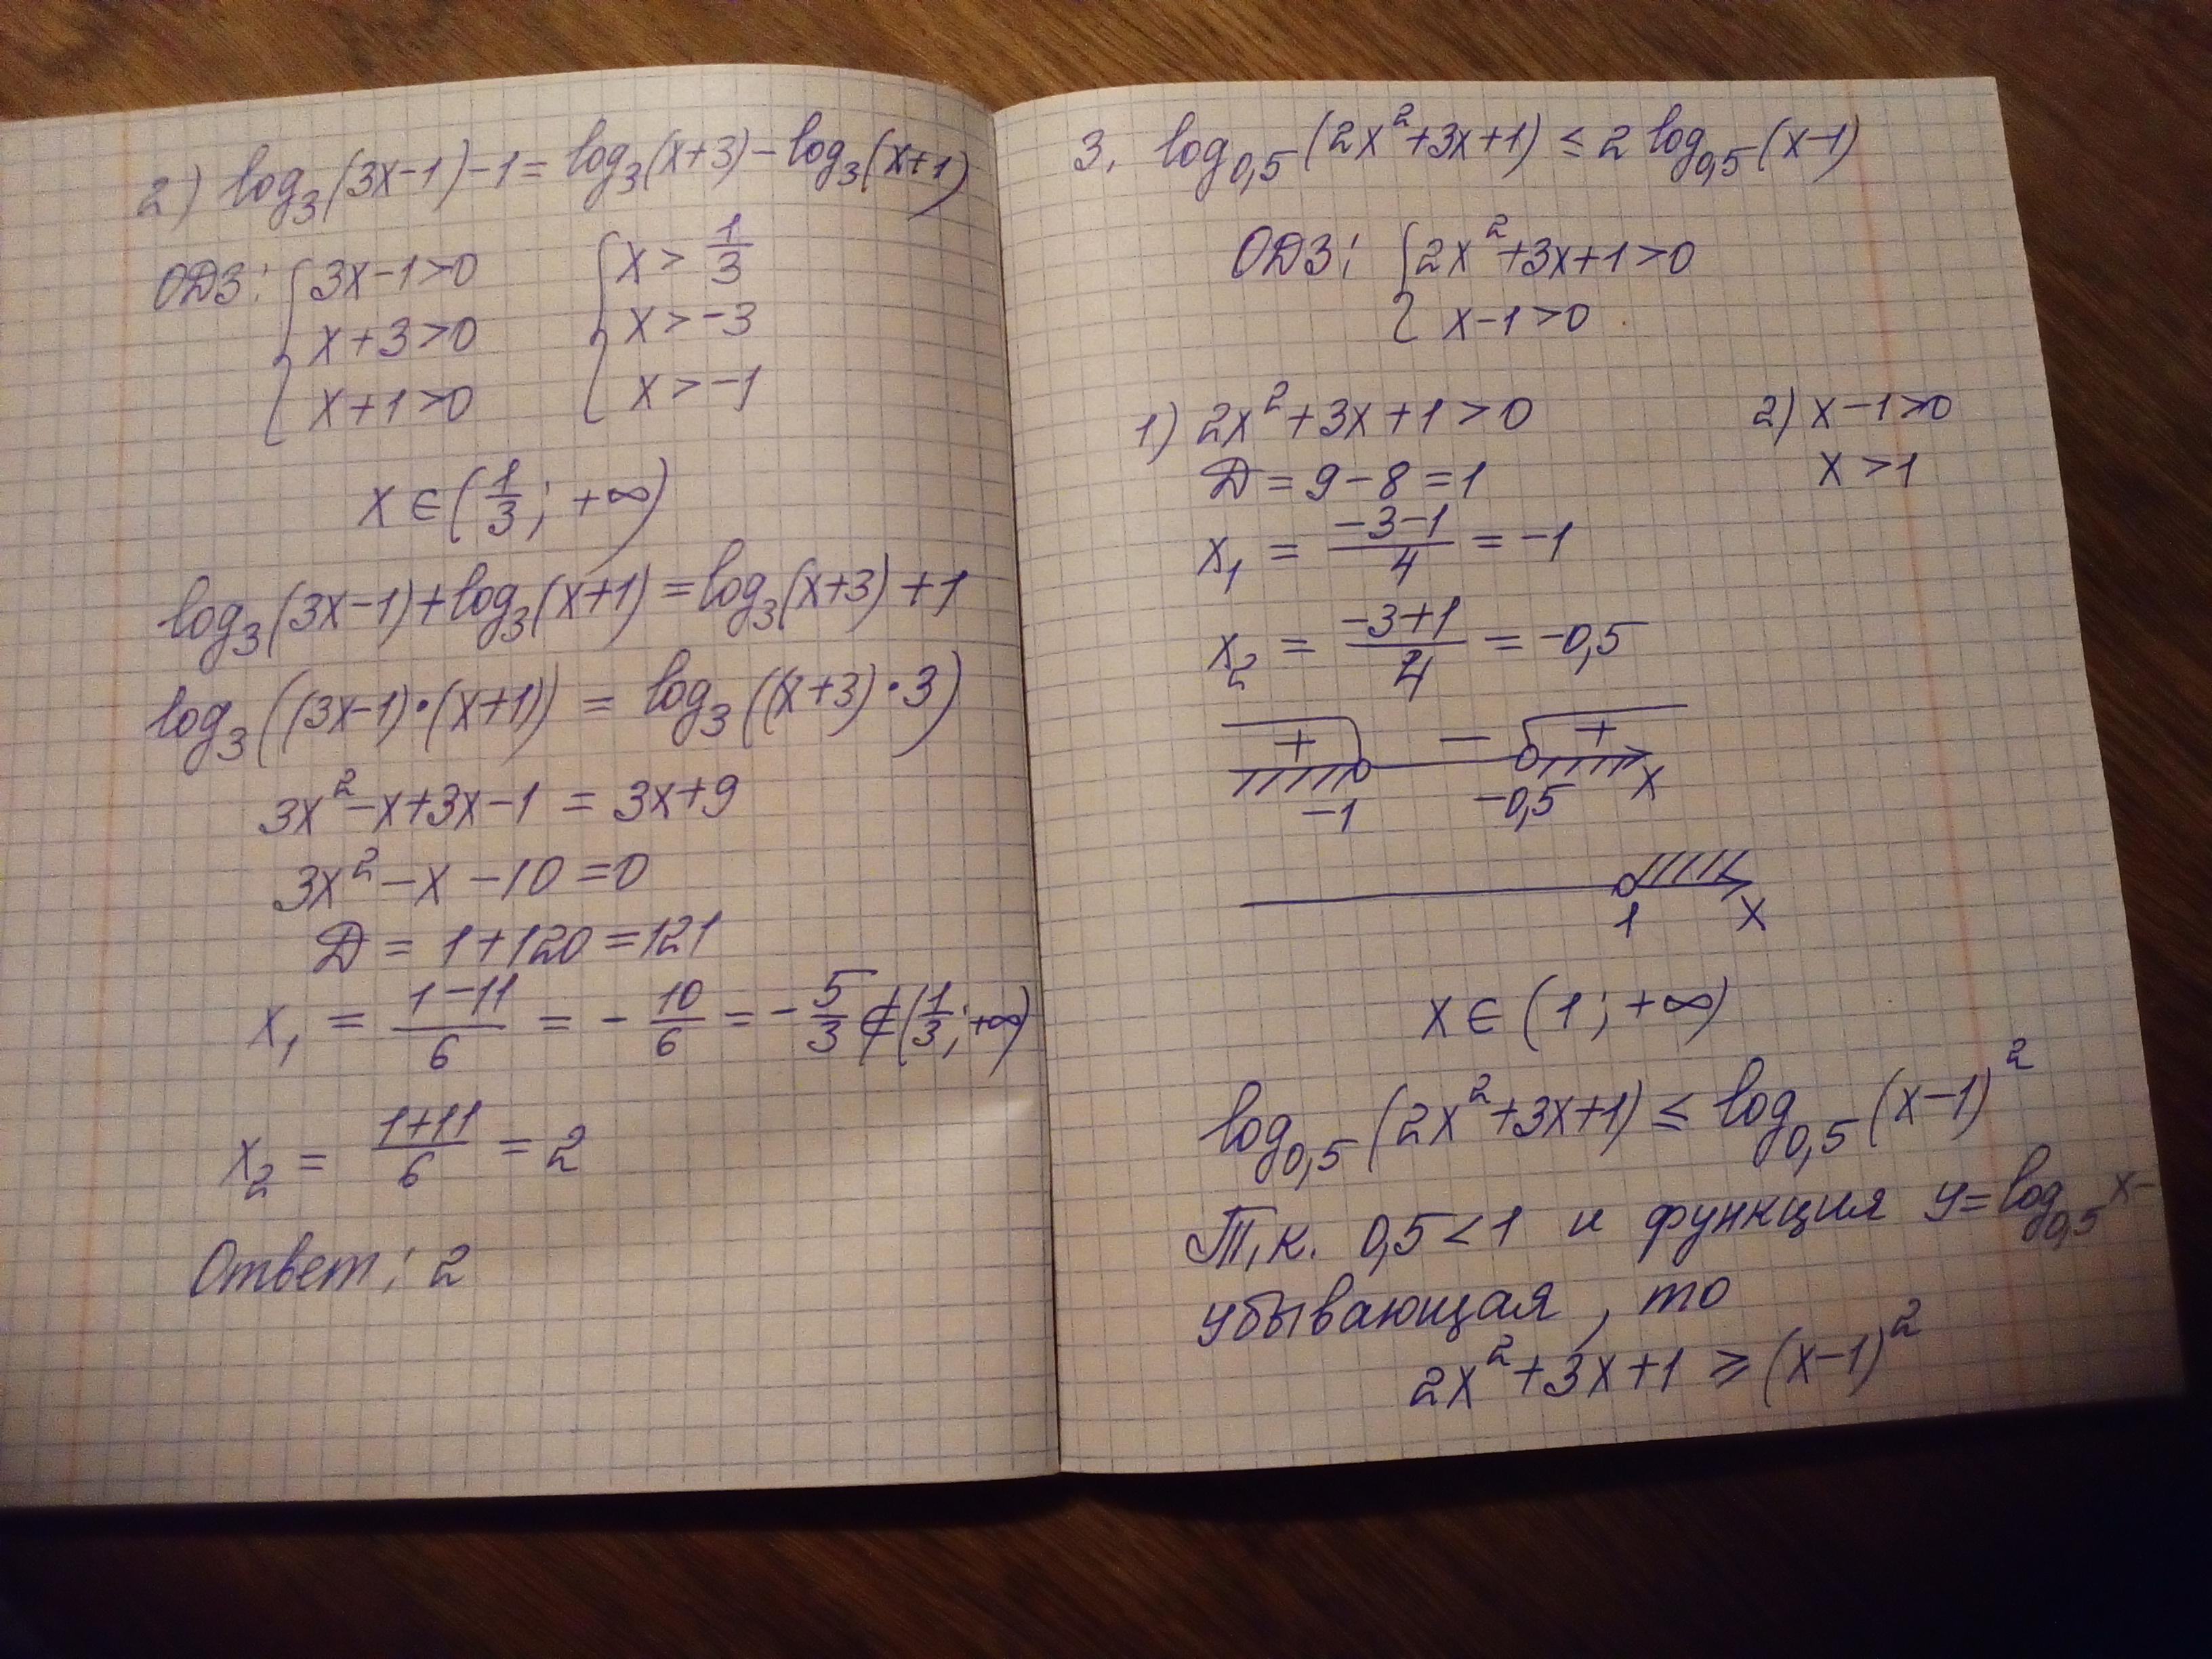 2) log₃(3x-1)-1 = log₃(x+3) - log₃(x+1)
ОДЗ: { 3x-1>0 { x > 1/3
x+3>0 x > -3
x+1>0 x > -1
x ∈ (1/3; +∞)
log₃(3x-1)+log₃(x+1) = log₃(x+3)+1
log₃((3x-1)•(x+1)) = log₃((x+3)•3)
3x²-x+3x-1 = 3x+9
3x²-x-10=0
Д = 1+120=121
x₁ = (1-11)/6 = -10/6 = -5/3 ∉ (1/3; +∞)
x₂ = (1+11)/6 = 2
Ответ: 2
3. log₀,₅(2x²+3x+1) ≤ 2 log₀,₅(x-1)
ОДЗ: { 2x²+3x+1>0
x-1>0
1) 2x²+3x+1>0 2) x-1>0
Д = 9-8=1 x>1
x₁ = (-3-1)/4 = -1
x₂ = (-3+1)/4 = -0,5
+ - +
-1 -0,5 x
1 x
x ∈ (1; +∞)
log₀,₅(2x²+3x+1) ≤ log₀,₅(x-1)²
Т.к. 0,5<1 и функция y=log₀,₅x -
убывающая, то
2x²+3x+1 ≥ (x-1)²